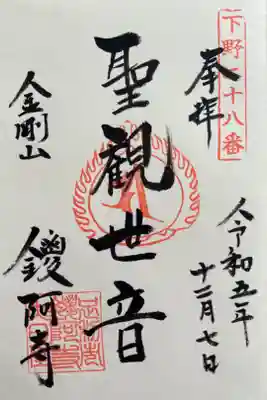 下野十八番
奉拝
令和五年
十二月七日
聖觀世音
金剛山
鑁阿寺